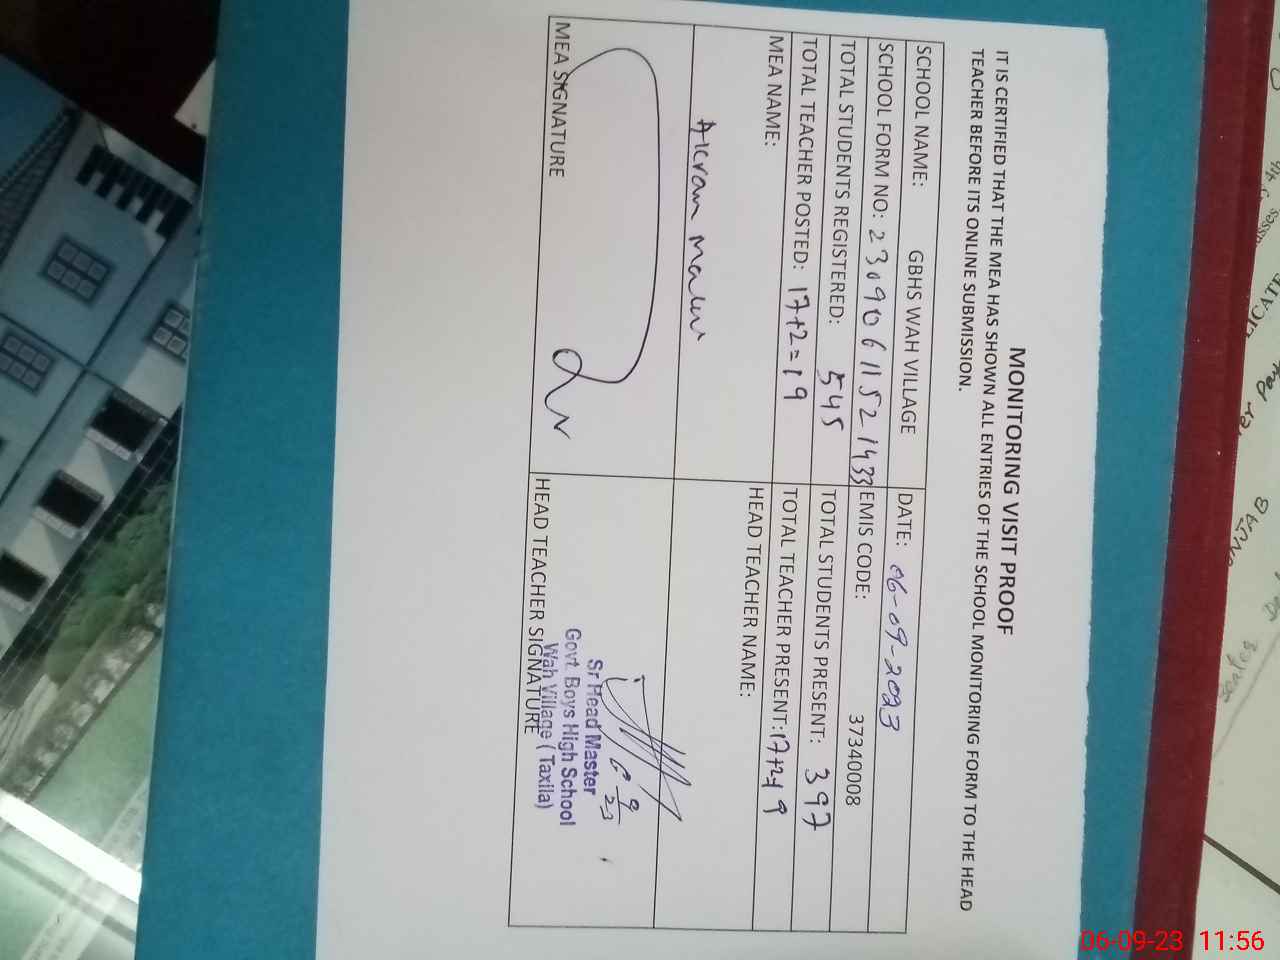 MONITORING VISIT PROOF
IT IS CERTIFIED THAT THE MEA HAS SHOWN ALL ENTRIES OF THE SCHOOL MONITORING FORM TO THE HEAD
TEACHER BEFORE ITS ONLINE SUBMISSION.
SCHOOL NAME: GBHS WAH VILLAGE DATE: 06-09-2023
SCHOOL FORM NO: 23090611521433 EMIS CODE: 37340008
TOTAL STUDENTS REGISTERED: 545 TOTAL STUDENTS PRESENT: 397
TOTAL TEACHER POSTED: 17+2=19 TOTAL TEACHER PRESENT: 17+2=19
MEA NAME: HEAD TEACHER NAME:
Akram
Sr Head Master
Govt. Boys High School
Wah Village (Taxila)
MEA SIGNATURE HEAD TEACHER SIGNATURE
LICATE
UNJAB
Scales
06-09-23 11:56